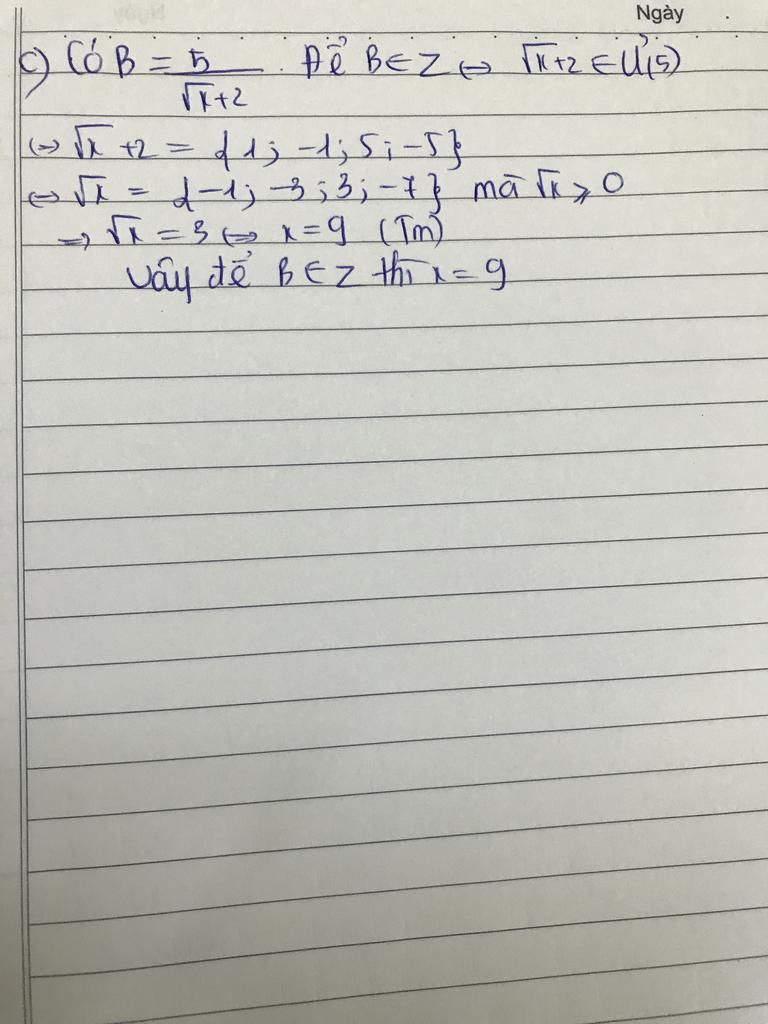 Ngày
c) Có B = 5/(√x+2) . Để B ∈ Z ⇔ √x+2 ∈ Ư(5)
⇔ √x +2 = {1; -1; 5; -5}
⇔ √x = {-1; -3; 3; -7} mà √x ⩾ 0
⇒ √x = 3 ⇔ x = 9 (Tm)
Vậy để B ∈ Z thì x = 9